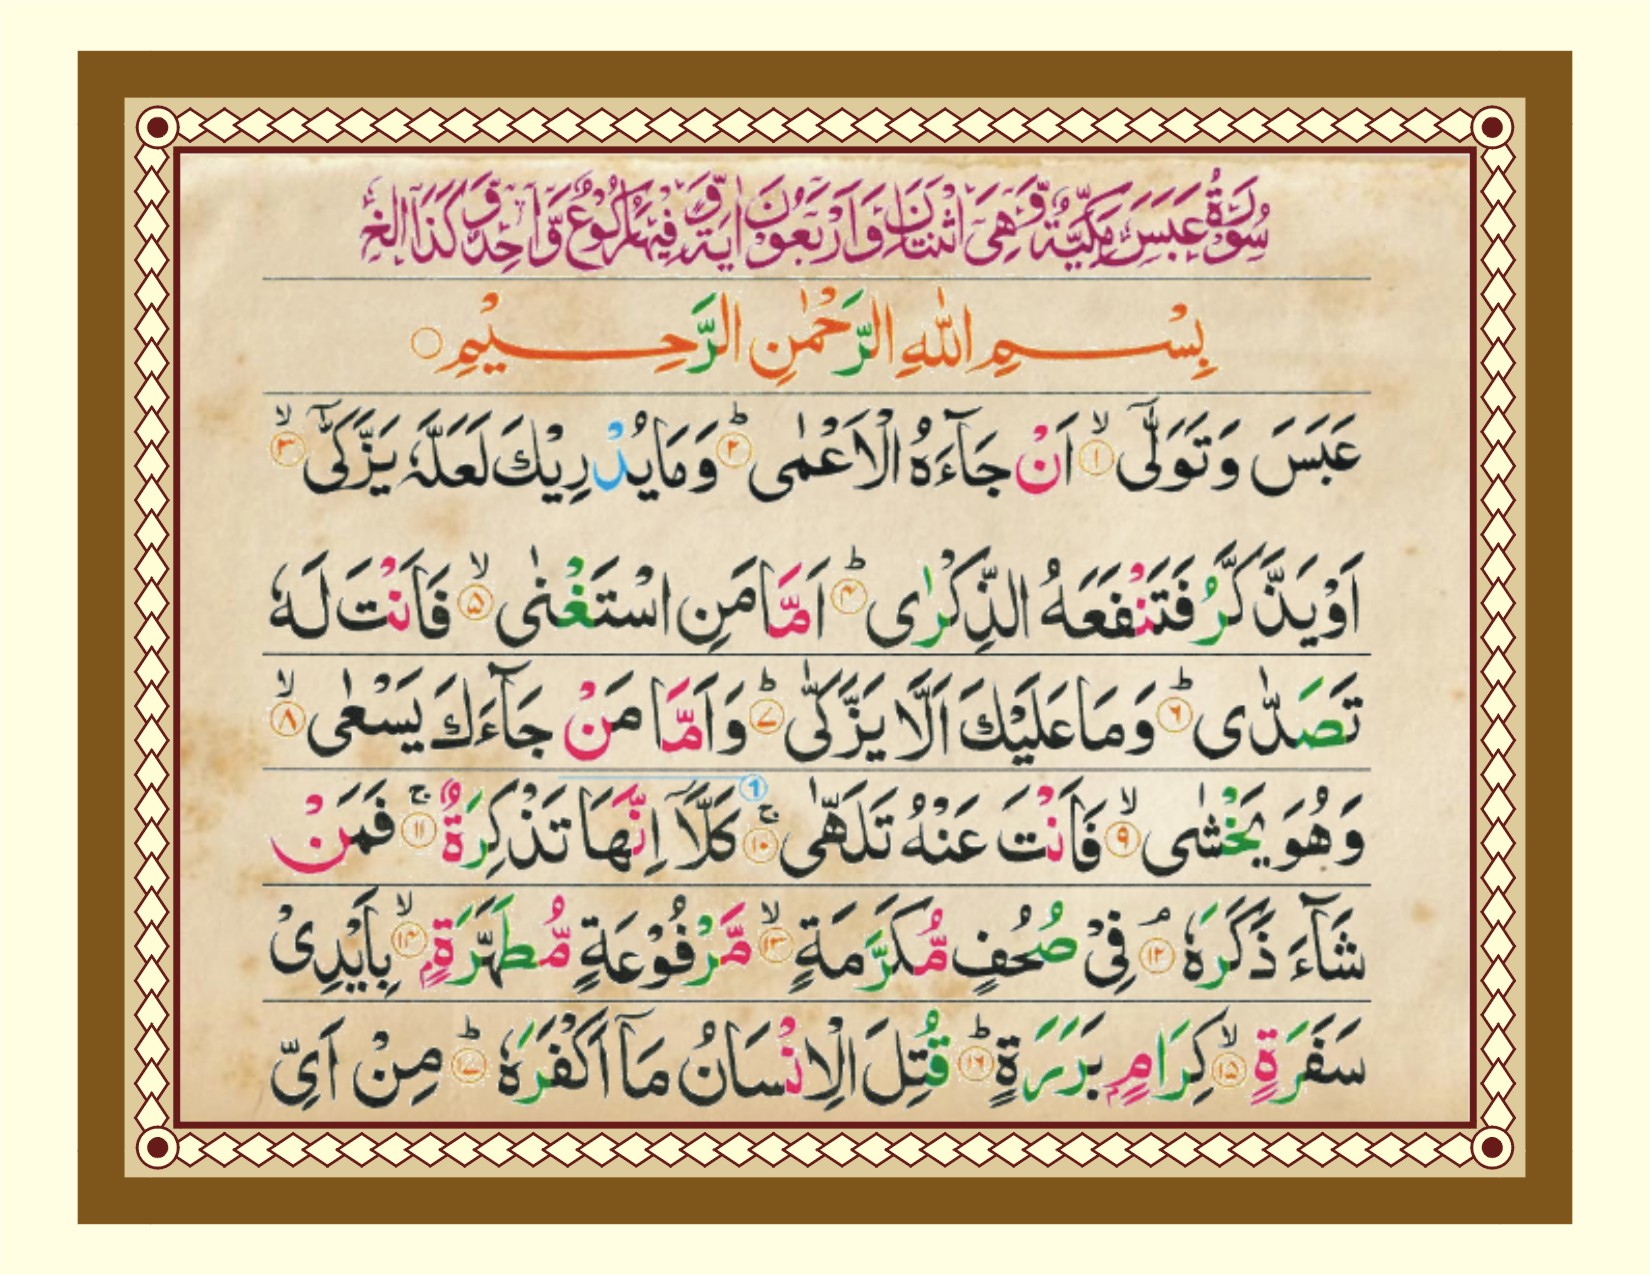 سُوْرَةُ عَبَسَ مَكِّيَّةٌ وَّهِيَ اثْنَتَانِ وَاَرْبَعُوْنَ اٰيَةً وَّفِيْهَا رُكُوْعٌ وَّاحِدٌ
بِسْمِ اللّٰهِ الرَّحْمٰنِ الرَّحِيْمِ ○
عَبَسَ وَتَوَلّٰٓى ۙ﴿۱﴾ اَنْ جَآءَهُ الْاَعْمٰى ؕ﴿۲﴾ وَمَا يُدْرِيْكَ لَعَلَّهٗ يَزَّكّٰٓى ۙ﴿۳﴾
اَوْ يَذَّكَّرُ فَتَنْفَعَهُ الذِّكْرٰى ؕ﴿۴﴾ اَمَّا مَنِ اسْتَغْنٰى ۙ﴿۵﴾ فَاَنْتَ لَهٗ
تَصَدّٰى ؕ﴿۶﴾ وَمَا عَلَيْكَ اَلَّا يَزَّكّٰى ؕ﴿۷﴾ وَاَمَّا مَنْ جَآءَكَ يَسْعٰى ۙ﴿۸﴾
وَهُوَ يَخْشٰى ۙ﴿۹﴾ فَاَنْتَ عَنْهُ تَلَهّٰى ۚ﴿۱۰﴾ كَلَّآ اِنَّهَا تَذْكِرَةٌ ۚ﴿۱۱﴾ فَمَنْ
شَآءَ ذَكَرَهٗ ۘ﴿۱۲﴾ فِيْ صُحُفٍ مُّكَرَّمَةٍ ۙ﴿۱۳﴾ مَّرْفُوْعَةٍ مُّطَهَّرَةٍۭ ۙ﴿۱۴﴾ بِاَيْدِيْ
سَفَرَةٍ ۙ﴿۱۵﴾ كِرَامٍۭ بَرَرَةٍ ؕ﴿۱۶﴾ قُتِلَ الْاِنْسَانُ مَآ اَكْفَرَهٗ ؕ﴿۱۷﴾ مِنْ اَيِّ